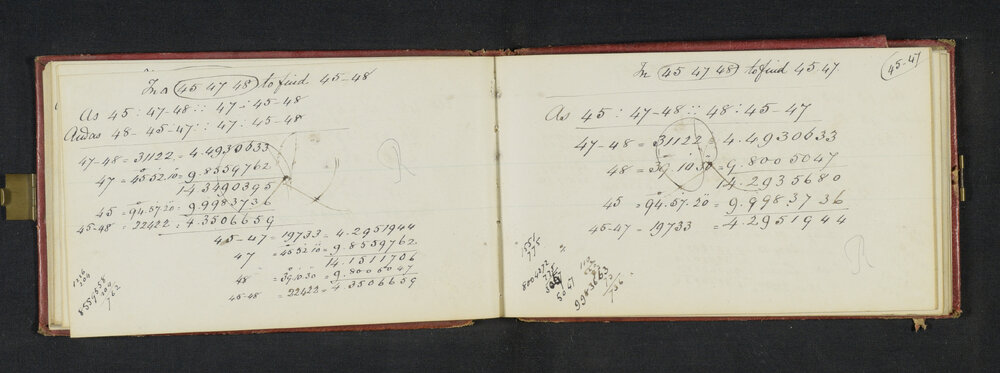 In a (45 47 48) to find 45-48
As 45 : 47-48 :: 47 : 45-48
And as 48 - 45-47 :: 47 : 45-48
47-48 = 31122 = 4.4930633
47 = 45.52.10 = 9.8559762
14.3490395
45 = 94.57.20 = 9.9983736
45-48 = 22422 = 4.3506659
45-47 = 19733 = 4.2951944
47 = 45.52.10 = 9.8559762
14.1511706
48 = 39.10.30 = 9.8005047
45-48 = 22422 = 4.3506659
8559858
762
45-47
In (45 47 48) to find 45-47
As 45 : 47-48 :: 48 : 45-47
47-48 = 31122 = 4.4930633
48 = 39.10.30 = 9.8005047
14.2935680
45 = 94.57.20 = 9.9983736
45-47 = 19733 = 4.2951944
1551
775
8004272
775
5047
9983663
736